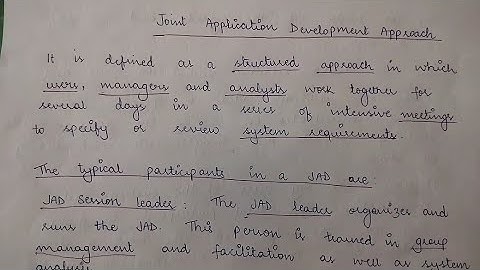 Joint Application Development Approach
It is defined as a structured approach in which
users, managers and analysts work together for
several days in a series of intensive meetings
to specify or review system requirements.
The typical participants in a JAD are:
JAD Session leader: The JAD leader organizes and
runs the JAD. This person is trained in group
management and facilitation as well as system
analysis.